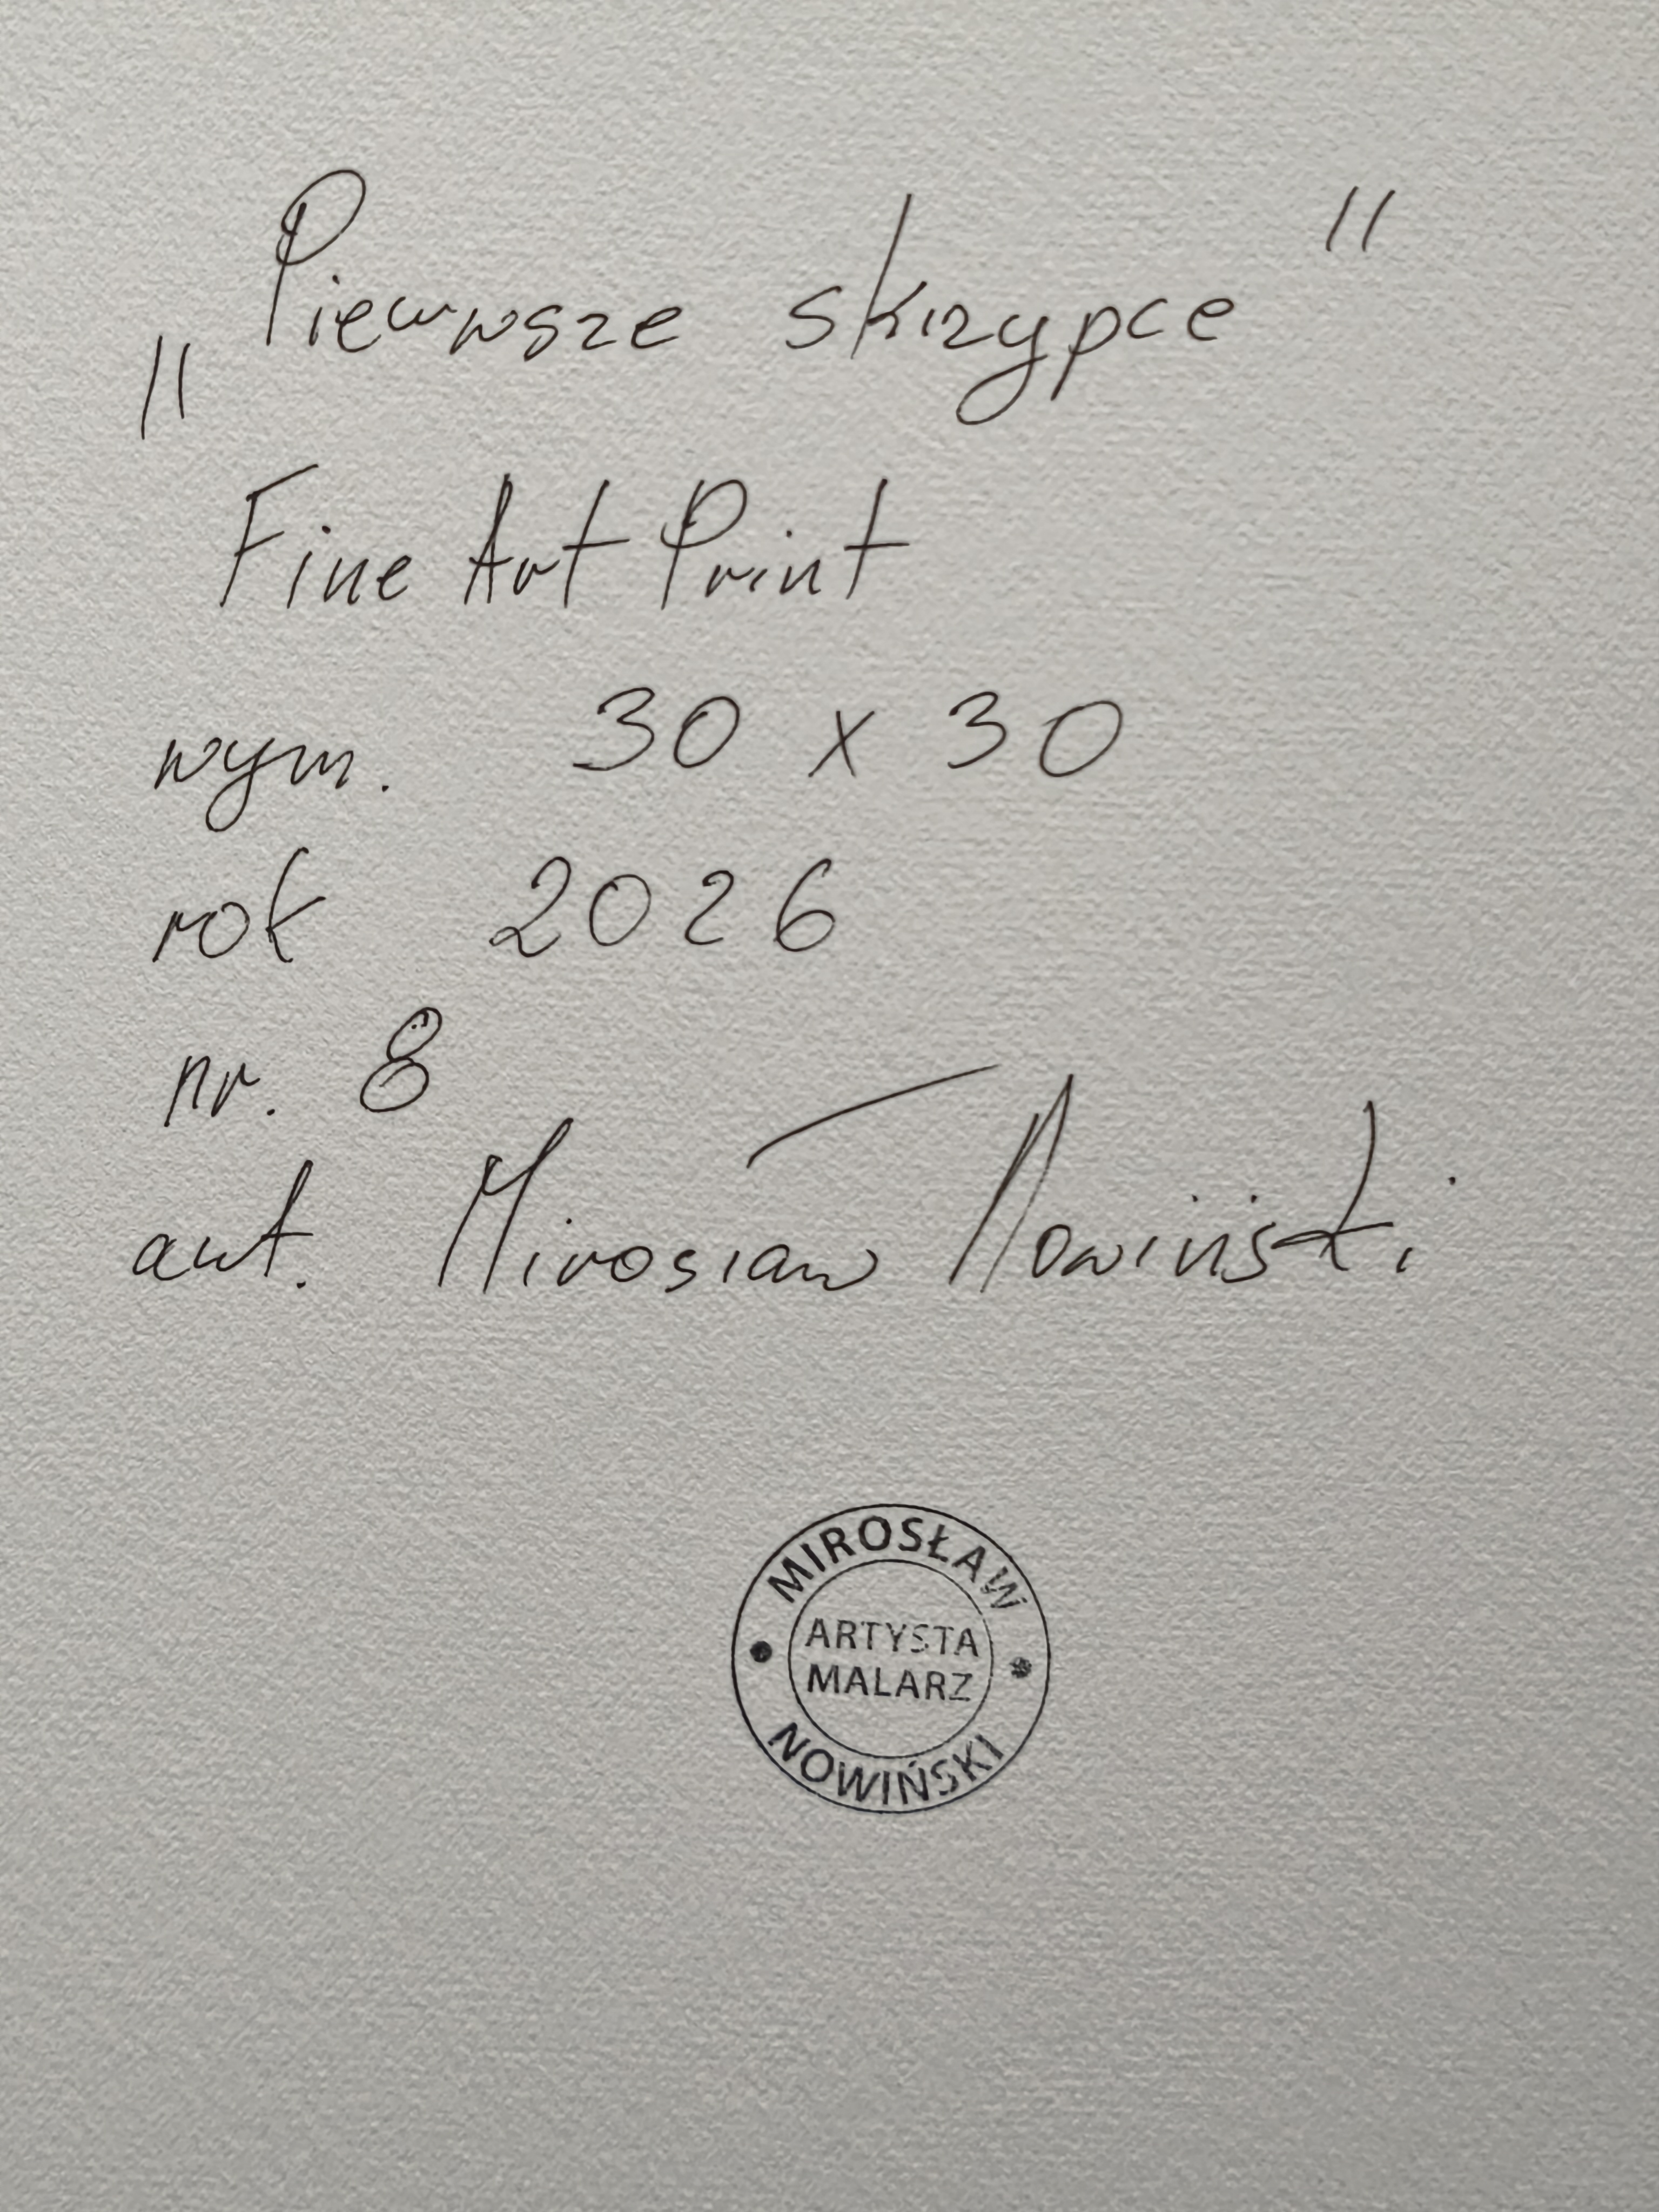 „Pierwsze skrzypce"
Fine Art Print
wym. 30 x 30
rok 2026
nr. 8
aut. Mirosław Nowiński
MIROSŁAW
ARTYSTA
MALARZ
NOWIŃSKI